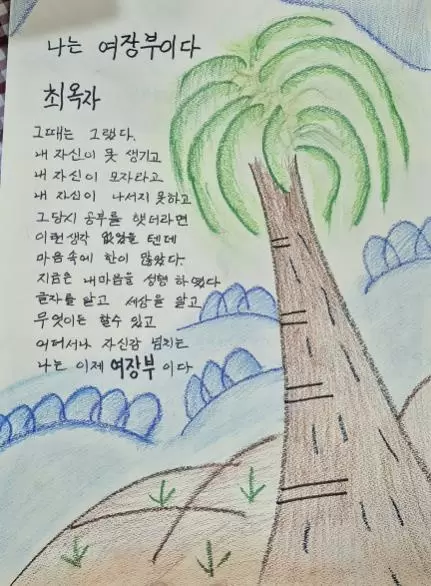 나는 여장부이다
최옥자
그때는 그랬다.
내 자신이 못 생기고
내 자신이 모자라고
내 자신이 나서지 못하고
그당시 공부를 했더라면
이런생각 없었을 텐데
마음속에 한이 많았다.
지금은 내마음을 성형 하였다
글자를 알고 세상을 알고
무엇이든 할수 있고
어디서나 자신감 넘치는
나는 이제 여장부 이다